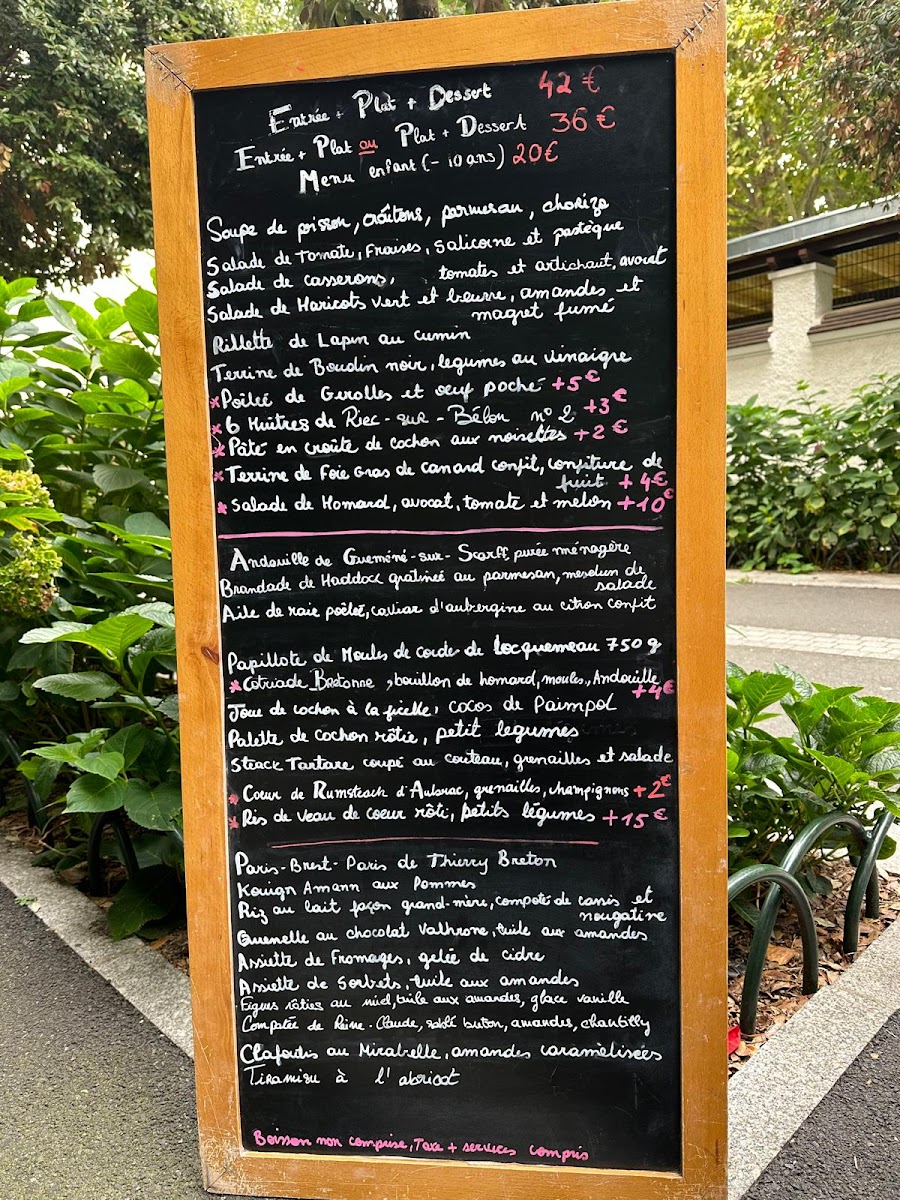 Entrée + Plat + Dessert 42 €
Entrée + Plat ou Plat + Dessert 36 €
Menu enfant (- 10 ans) 20€
Soupe de poisson, croûtons, parmesan, chorizo
Salade de Tomate, Fraises, Salicorne et pastèque
Salade de casserons, tomates et artichaut, avocat
Salade de Haricots vert et beurre, amandes et
magret fumé
Rillette de Lapin au cumin
Terrine de Boudin noir, legumes au vinaigre
* Poilée de Girolles et œuf poché +5€
* 6 Huîtres de Riec-sur-Bélon n°2 +3€
* Pâté en croûte de cochon aux noisettes +2€
* Terrine de Foie Gras de canard confit, confiture de
fruit +4€
* Salade de Homard, avocat, tomate et melon +10€
Andouille de Guémené-sur-Scorff, purée ménagère
Brandade de Haddock gratinée au parmesan, mesclun de
salade
Aile de raie poêlée, caviar d'aubergine au citron confit
Papillote de Moules de corde de Locquemeau 750 g
* Cotriade Bretonne, bouillon de homard, moules, Andouille
+4€
Joue de cochon à la ficelle, cocos de Paimpol
Palette de Cochon rôtie, petit legumes
Steack Tartare coupé au couteau, grenailles et salade
* Coeur de Rumsteack d'Aubrac, grenailles, champignons +2€
* Ris de veau de coeur rôti, petits légumes +15€
Paris-Brest-Paris de Thierry Breton
Kouign Amann aux Pommes
Riz au lait façon grand-mère, compoté de
et
nougatine
Quenelle au chocolat Valhrona, tuile aux amandes
Assiette de Fromages, gelée de cidre
Assiette de Sorbets, tuile aux amandes
Figues rôties au miel, tuile aux amandes, glace vanille
Compotée de Reine-Claude, sablé breton, amandes, chantilly
Clafoutis au Mirabelle, amandes caramèlisées
Tiramisu à l'abricot
Boisson non comprise, Taxe + services compris